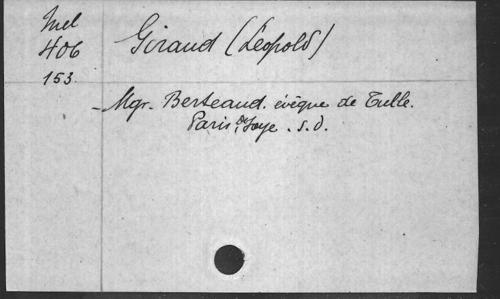 Mel
406
153.
Giraud (Léopold)
- Mgr. Berteaud. évêque de Tulle.
Paris, Soye. s.d.